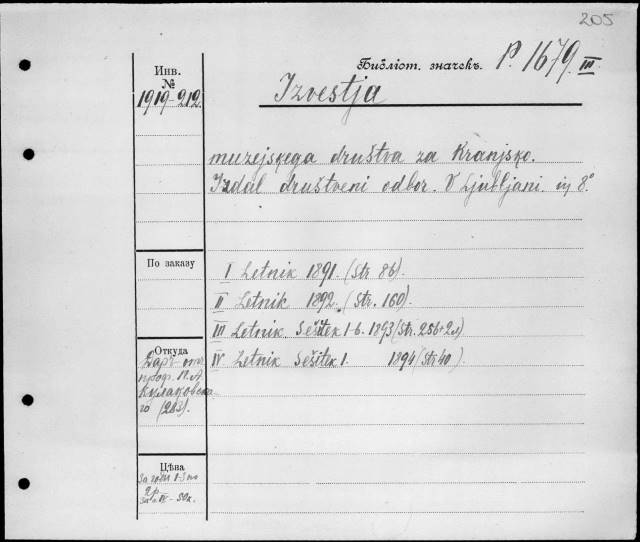 205
Библіот. значекъ. P. 1679. III
Инв.
№
1919-212
Izvestja
muzejskega društva za Kranjsko.
Izdal društveni odbor. V Ljubljani. in 8°
По заказу
I Letnik 1891. (Str 86).
II Letnik 1892. (Str. 160).
III Letnik. Sešitek 1-6. 1893 (Str. 256+2л)
IV Letnik Sešitek 1. 1894 (Str 40).
Откуда
Даръ отъ
проф. П. А
Кулаковска-
го (283).
Цѣна
за годы I-3 по
2р.
за IV - 50к.